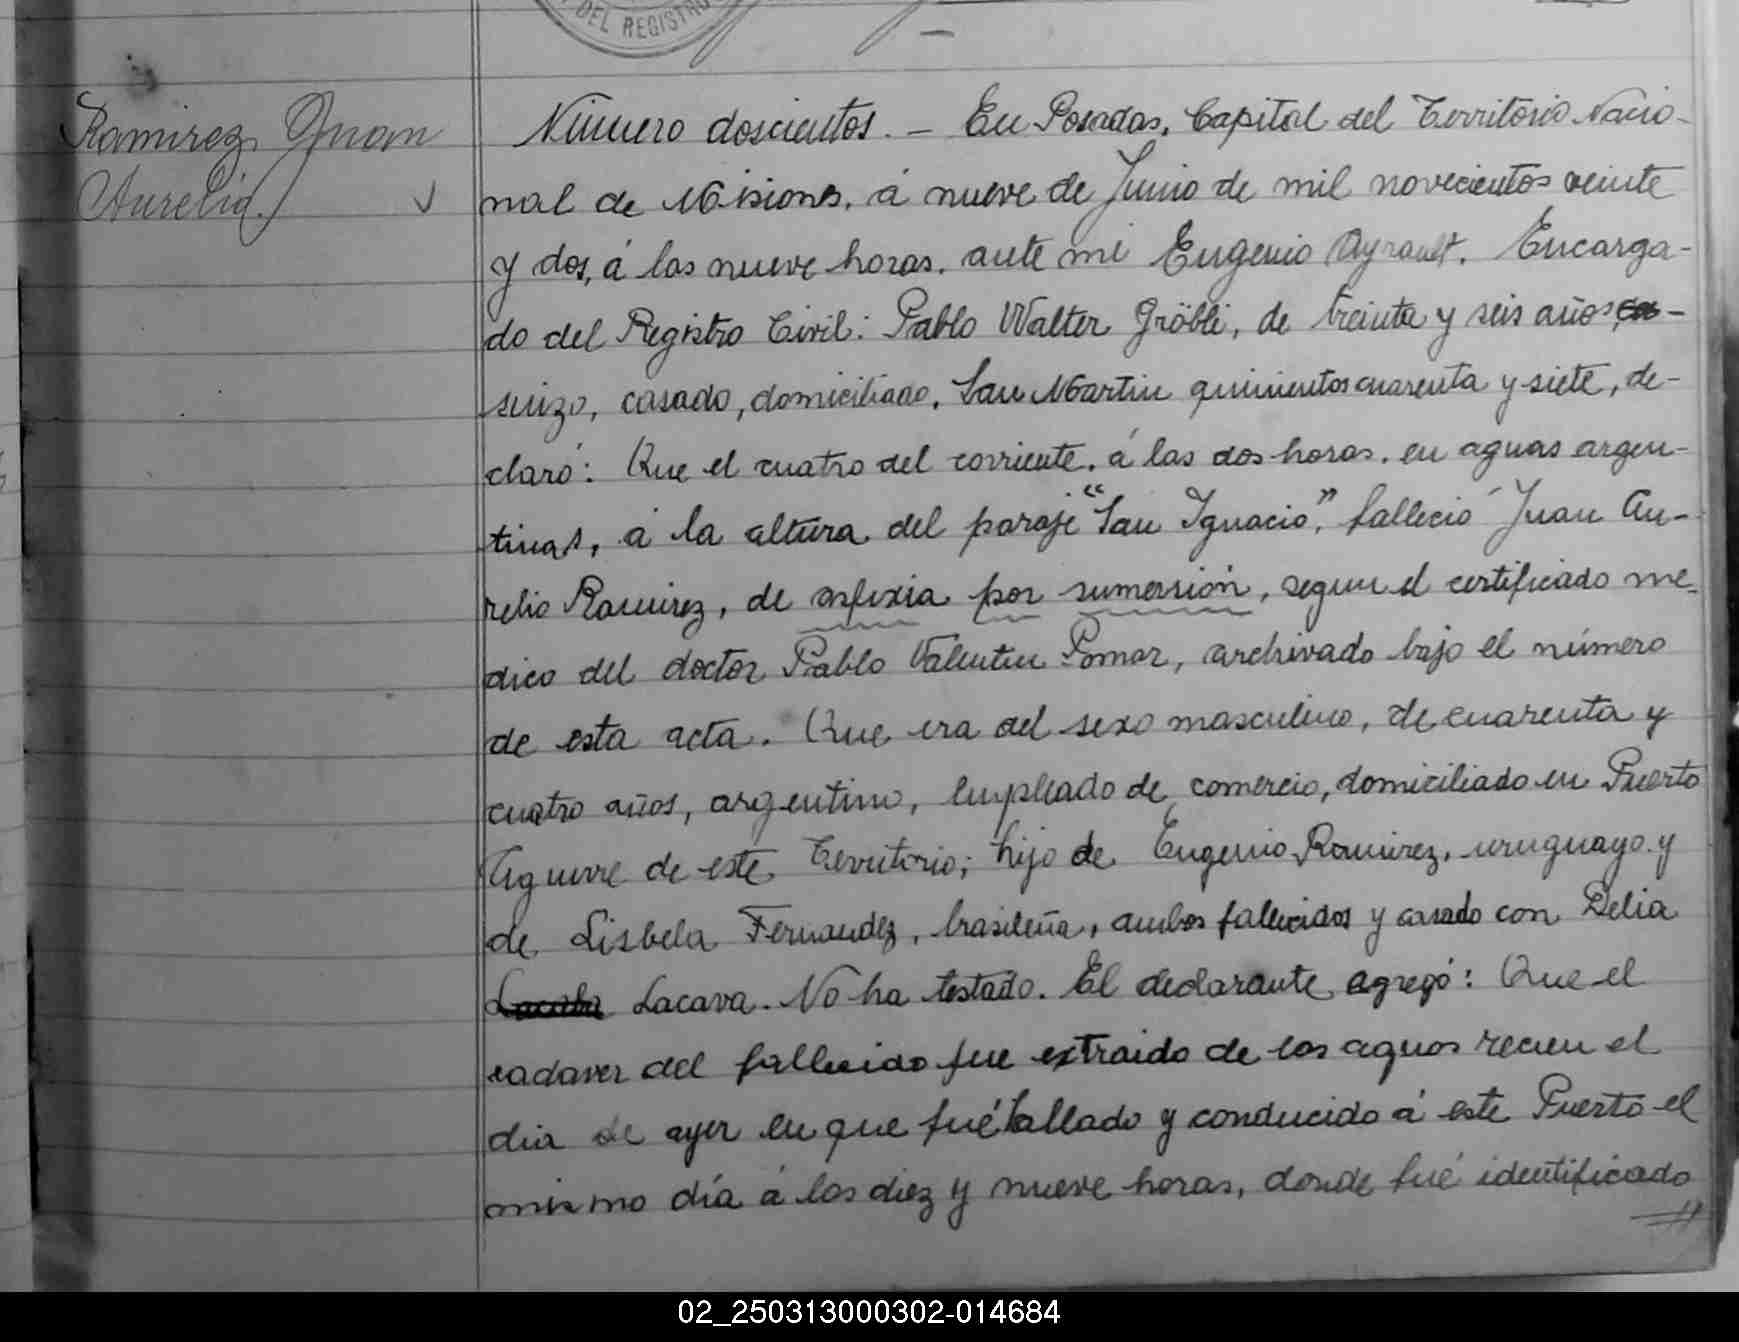 DEL REGISTRO
Ramirez Juan
Aurelio.
Número doscientos. — En Posadas, Capital del Territorio Nacio-
nal de Misiones, á nueve de Junio de mil novecientos veinte
y dos, á las nueve horas, ante mi Eugenio Ayrault, Encarga-
do del Registro Civil: Pablo Walter Gröbli, de treinta y seis años, -
suizo, casado, domiciliado, San Martin quinientos cuarenta y siete, de-
claró: Que el cuatro del corriente, á las dos horas, en aguas argen-
tinas, á la altura del paraje "San Ignacio", falleció Juan Au-
relio Ramirez, de asfixia por sumersión, segun el certificado me-
dico del doctor Pablo Valentin Pomar, archivado bajo el número
de esta acta. Que era del sexo masculino, de cuarenta y
cuatro años, argentino, empleado de comercio, domiciliado en Puerto
Aguirre de este Territorio; hijo de Eugenio Ramirez, uruguayo y
de Lisbela Fernandez, brasileña, ambos fallecidos y casado con Delia
Lacava. No ha testado. El declarante agregó: Que el
cadaver del fallecido fue extraido de las aguas recien el
dia de ayer en que fué hallado y conducido á este Puerto el
mismo día á las diez y nueve horas, donde fué identificado
02_250313000302-014684